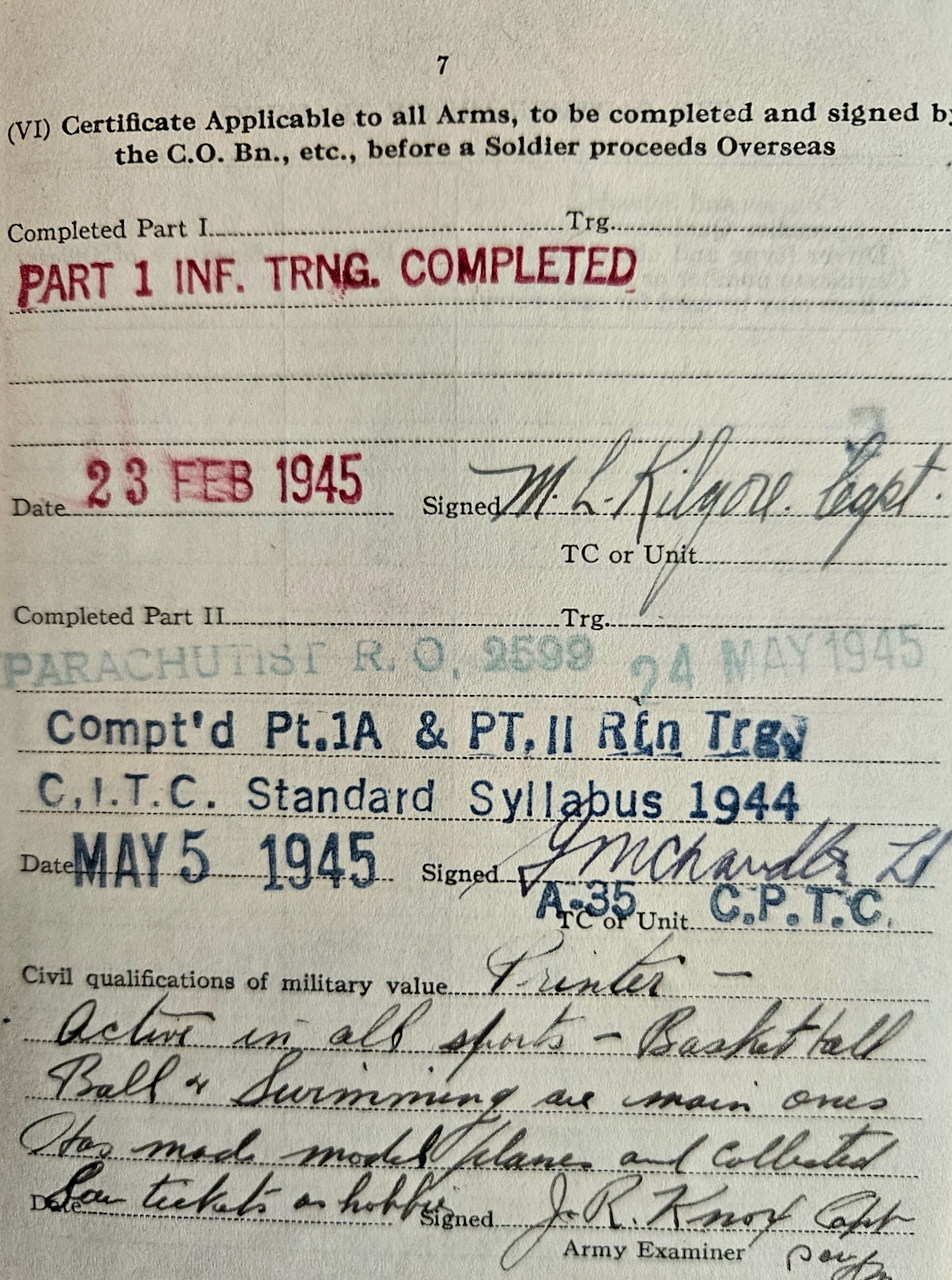 7
(VI) Certificate Applicable to all Arms, to be completed and signed by
the C.O. Bn., etc., before a Soldier proceeds Overseas
Completed Part I Trg.
PART 1 INF. TRNG. COMPLETED
Date 23 FEB 1945 Signed M. L. Kilgore. Capt.
TC or Unit
Completed Part II Trg.
PARACHUTIST R.O. 2599 24 MAY 1945
Compt'd Pt.1A & PT.II Rfn Trg
C.I.T.C. Standard Syllabus 1944
Date MAY 5 1945 Signed J M Chandler Lt
A-35 C.P.T.C.
TC or Unit
Civil qualifications of military value Printer –
Active in all sports – Basket
Ball & Swimming are main ones
Has made model planes and collected
tickets as hobbie
Date Signed J. R. Knox Capt
Army Examiner